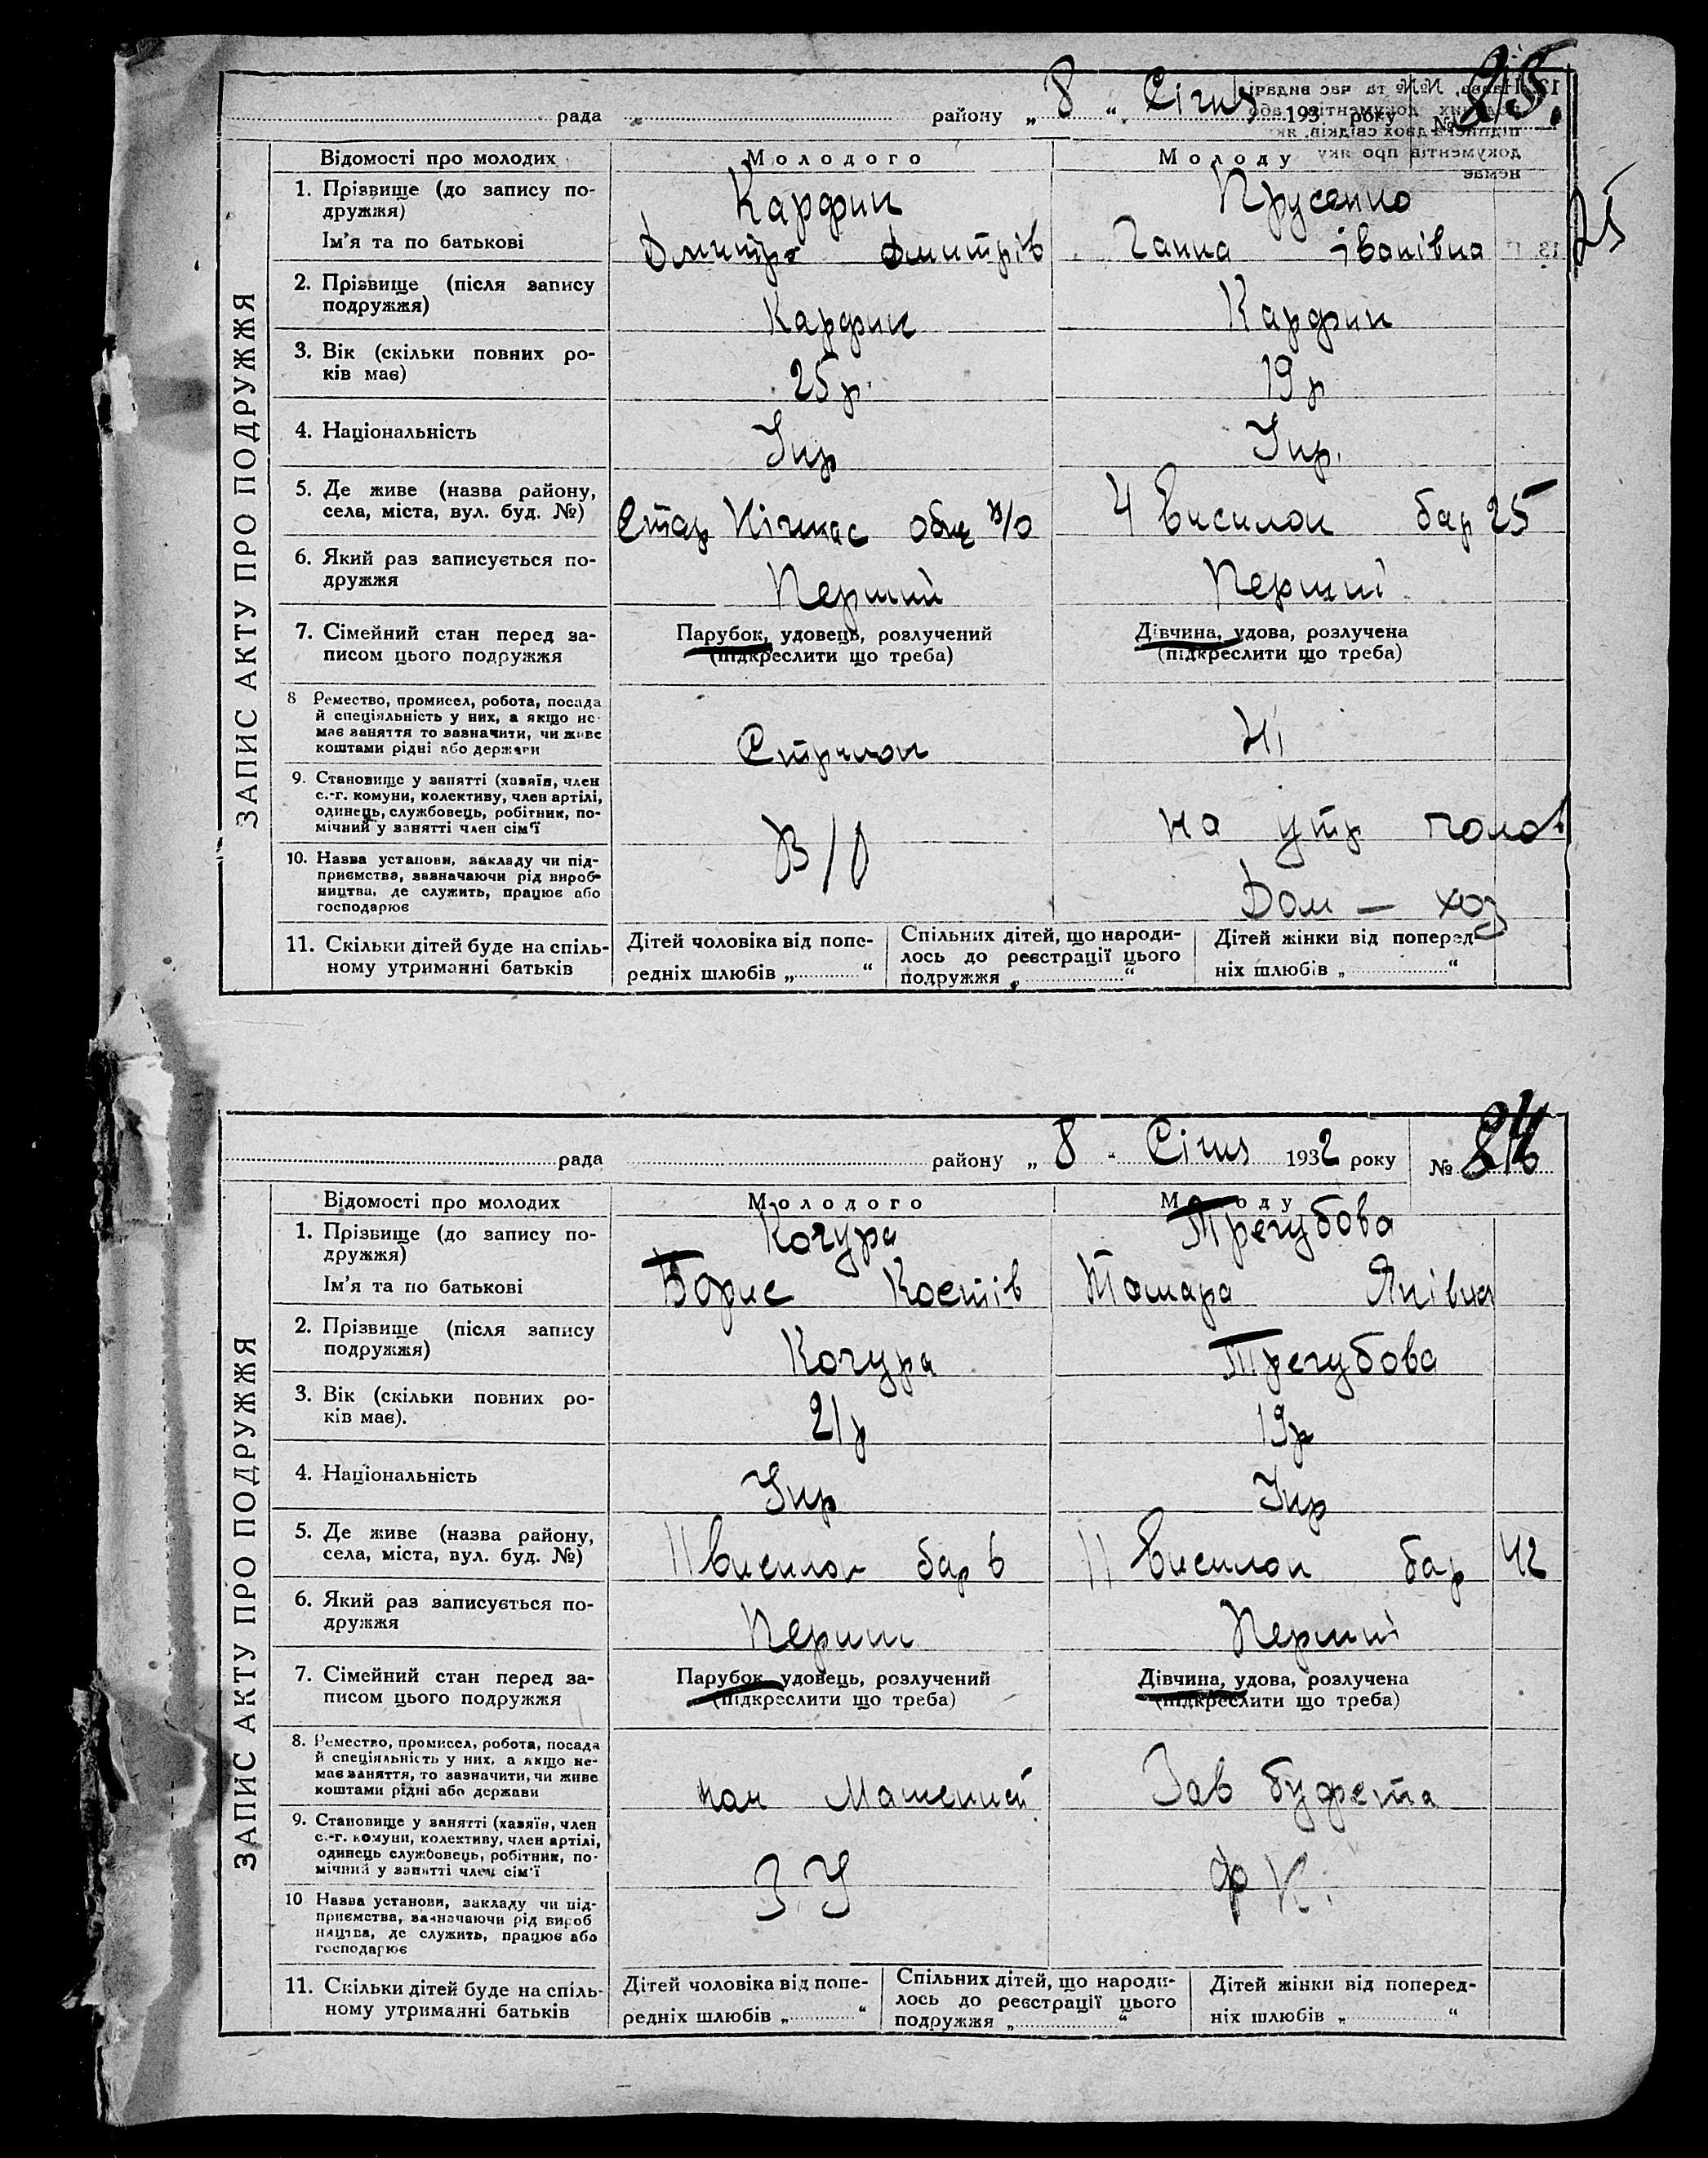 рада району „ 8 “ Січня 193 року № 25.
ЗАПИС АКТУ ПРО ПОДРУЖЖЯ
Відомості про молодих Молодого Молоду
1. Прізвище (до запису по-
дружжя) Кардик Прусенко
Ім'я та по батькові Дмитро Дмитрів Ганна Іванівна
2. Прізвище (після запису
подружжя) Кардик Кардик
3. Вік (скільки повних ро-
ків має) 25 р. 19 р
4. Національність Укр Укр.
5. Де живе (назва району,
села, міста, вул. буд. №) Стар Кічкас 4 Висилок бар 25
6. Який раз записується по-
дружжя Перший Перший
7. Сімейний стан перед за-
писом цього подружжя
Парубок, удовець, розлучений
(підкреслити що треба)
Дівчина, удова, розлучена
(підкреслити що треба)
8 Ремество, промисел, робота, посада
й спеціяльність у них, а якщо не-
має заняття то зазначити, чи живе
коштами рідні або держави
Стрилок Ні
9. Становище у занятті (хазяїн, член
с.-г. комуни, колективу, член артілі,
одинець, службовець, робітник, по-
мічний у занятті член сім'ї
на утр чолов
10. Назва установи, закладу чи під-
приємства, зазначаючи рід вироб-
ництва, де служить, працює або
господарює
В/О Дом — хоз
11. Скільки дітей буде на спіль-
ному утриманні батьків
Дітей чоловіка від попе-
редніх шлюбів „ “
Спільних дітей, що народи-
лось до реєстрації цього
подружжя „ “
Дітей жінки від поперед-
ніх шлюбів „ “
25
рада району „ 8 “ Січня 1932 року №
ЗАПИС АКТУ ПРО ПОДРУЖЖЯ
Відомості про молодих Молодого Молоду
1. Прізвище (до запису по-
дружжя) Кочура Трегубова
Ім'я та по батькові Борис Костів Тамара Яківна
2. Прізвище (після запису
подружжя) Кочура Трегубова
3. Вік (скільки повних ро-
ків має). 21 р 19 р
4. Національність Укр Укр
5. Де живе (назва району,
села, міста, вул. буд. №) 11 Висилок бар 6 11 Висилок бар 42
6. Який раз записується по-
дружжя Перший Перший
7. Сімейний стан перед за-
писом цього подружжя
Парубок, удовець, розлучений
(підкреслити що треба)
Дівчина, удова, розлучена
(підкреслити що треба)
8. Ремество, промисел, робота, посада
й спеціяльність у них, а якщо не-
має заняття, то зазначити, чи живе
коштами рідні або держави
Зав буфета
9. Становище у занятті (хазяїн, член
с.-г. комуни, колективу, член артілі,
одинець службовець, робітник, по-
мічний у занятті член сім'ї
З У Ф К.
10 Назва установи, закладу чи під-
приємства, зазначаючи рід вироб
ництва, де служить, працює або
господарює
11. Скільки дітей буде на спіль-
ному утриманні батьків
Дітей чоловіка від попе-
редніх шлюбів „ “
Спільних дітей, що народи-
лось до реєстрації цього
подружжя „ “
Дітей жінки від поперед-
ніх шлюбів „ “